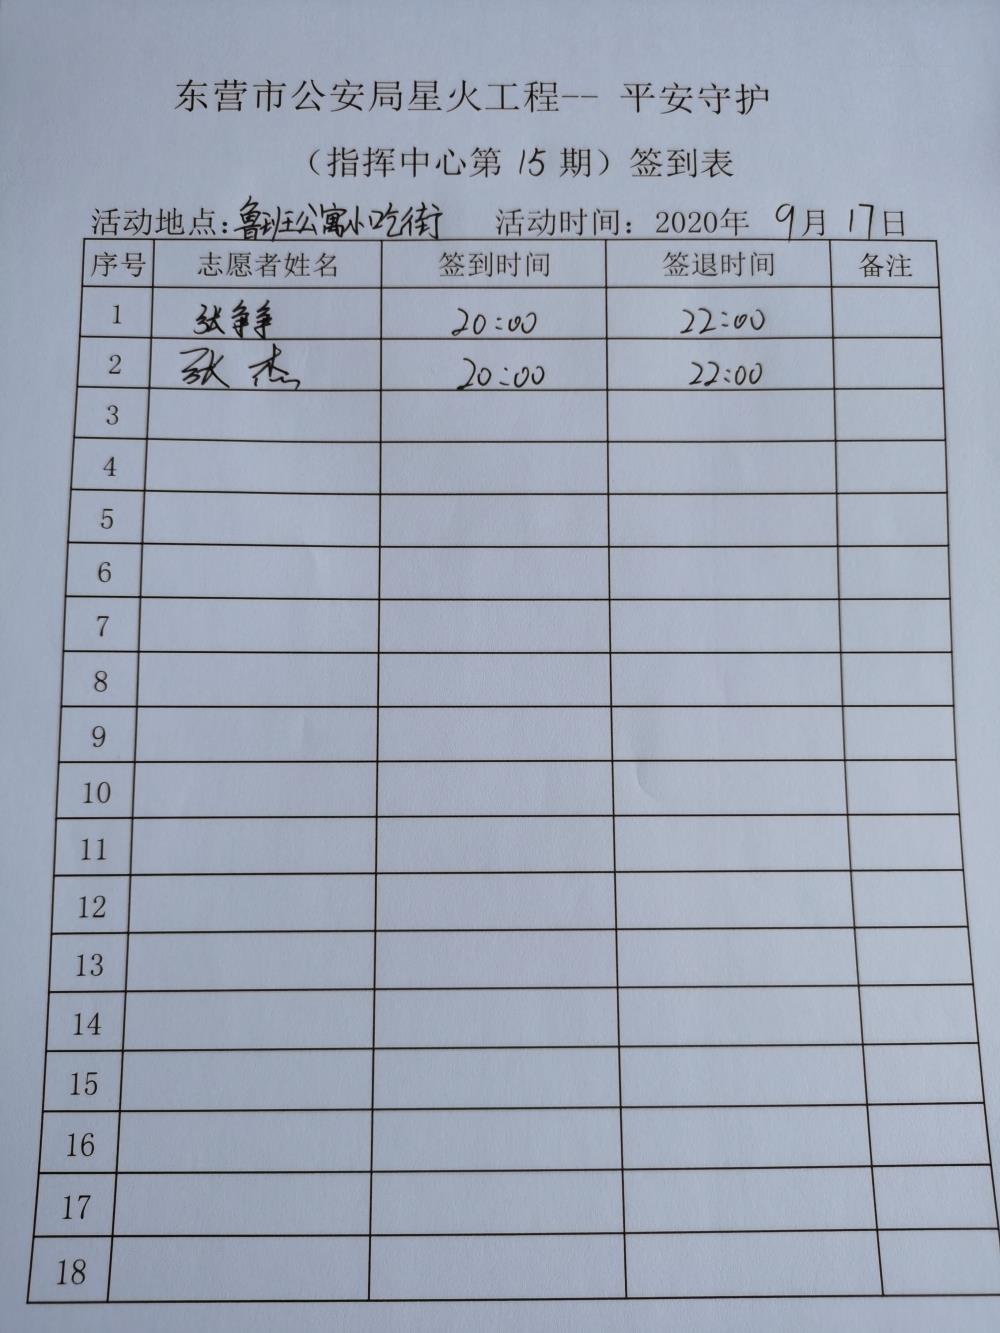 东营市公安局星火工程-- 平安守护
（指挥中心第 15 期）签到表
活动地点：鲁班公寓小吃街 活动时间：2020年 9月 17日
序号 志愿者姓名 签到时间 签退时间 备注
1 张争争 20:00 22:00
2 张杰 20:00 22:00
3
4
5
6
7
8
9
10
11
12
13
14
15
16
17
18